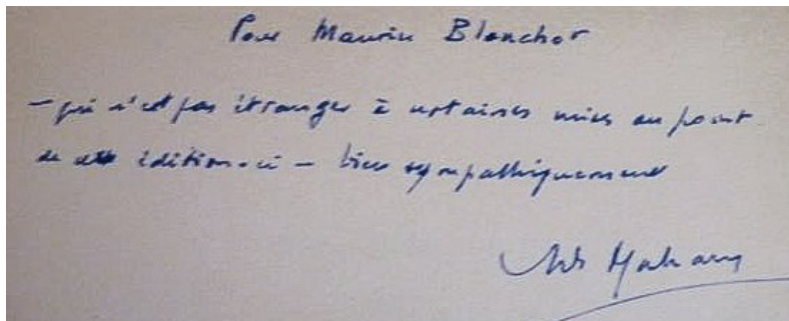 Pour Maurice Blanchot
– qui n'est pas étranger à certaines mises au point
de cette édition-ci – bien sympathiquement